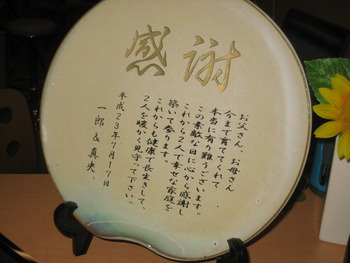 感謝
お父さん、お母さん
今まで育ててくれて
本当に有り難うございます。
この素敵な日に心から感謝し
これから2人で幸せな家庭を
築いて参ります。
これからも健康で長生きして、
2人を暖かく見守って下さい。
平成23年7月17日
一郎 & 真矢